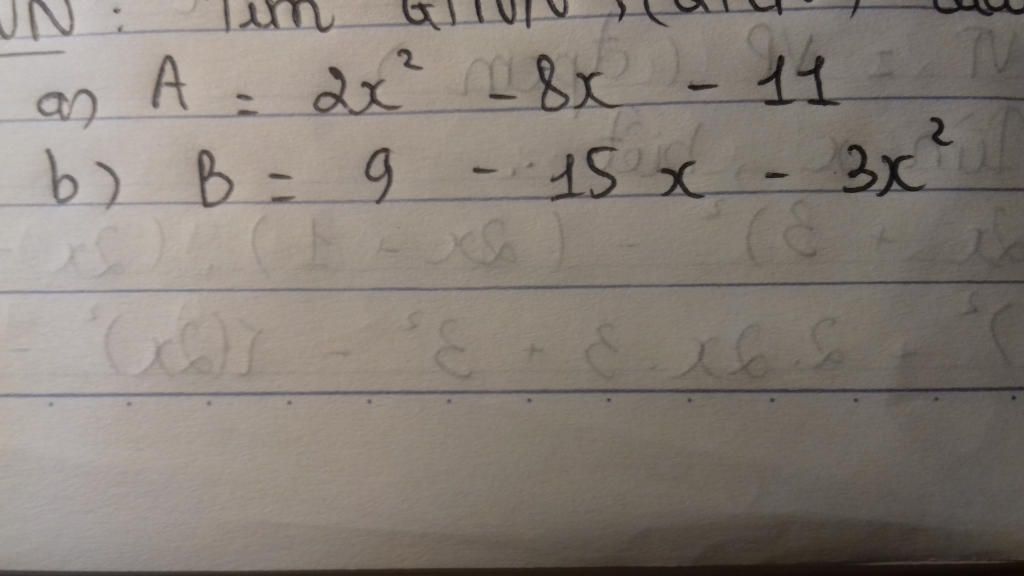 VN: Tìm GTNN, (GTLN)
a) A = 2x² - 8x - 11
b) B = 9 - 15x - 3x²